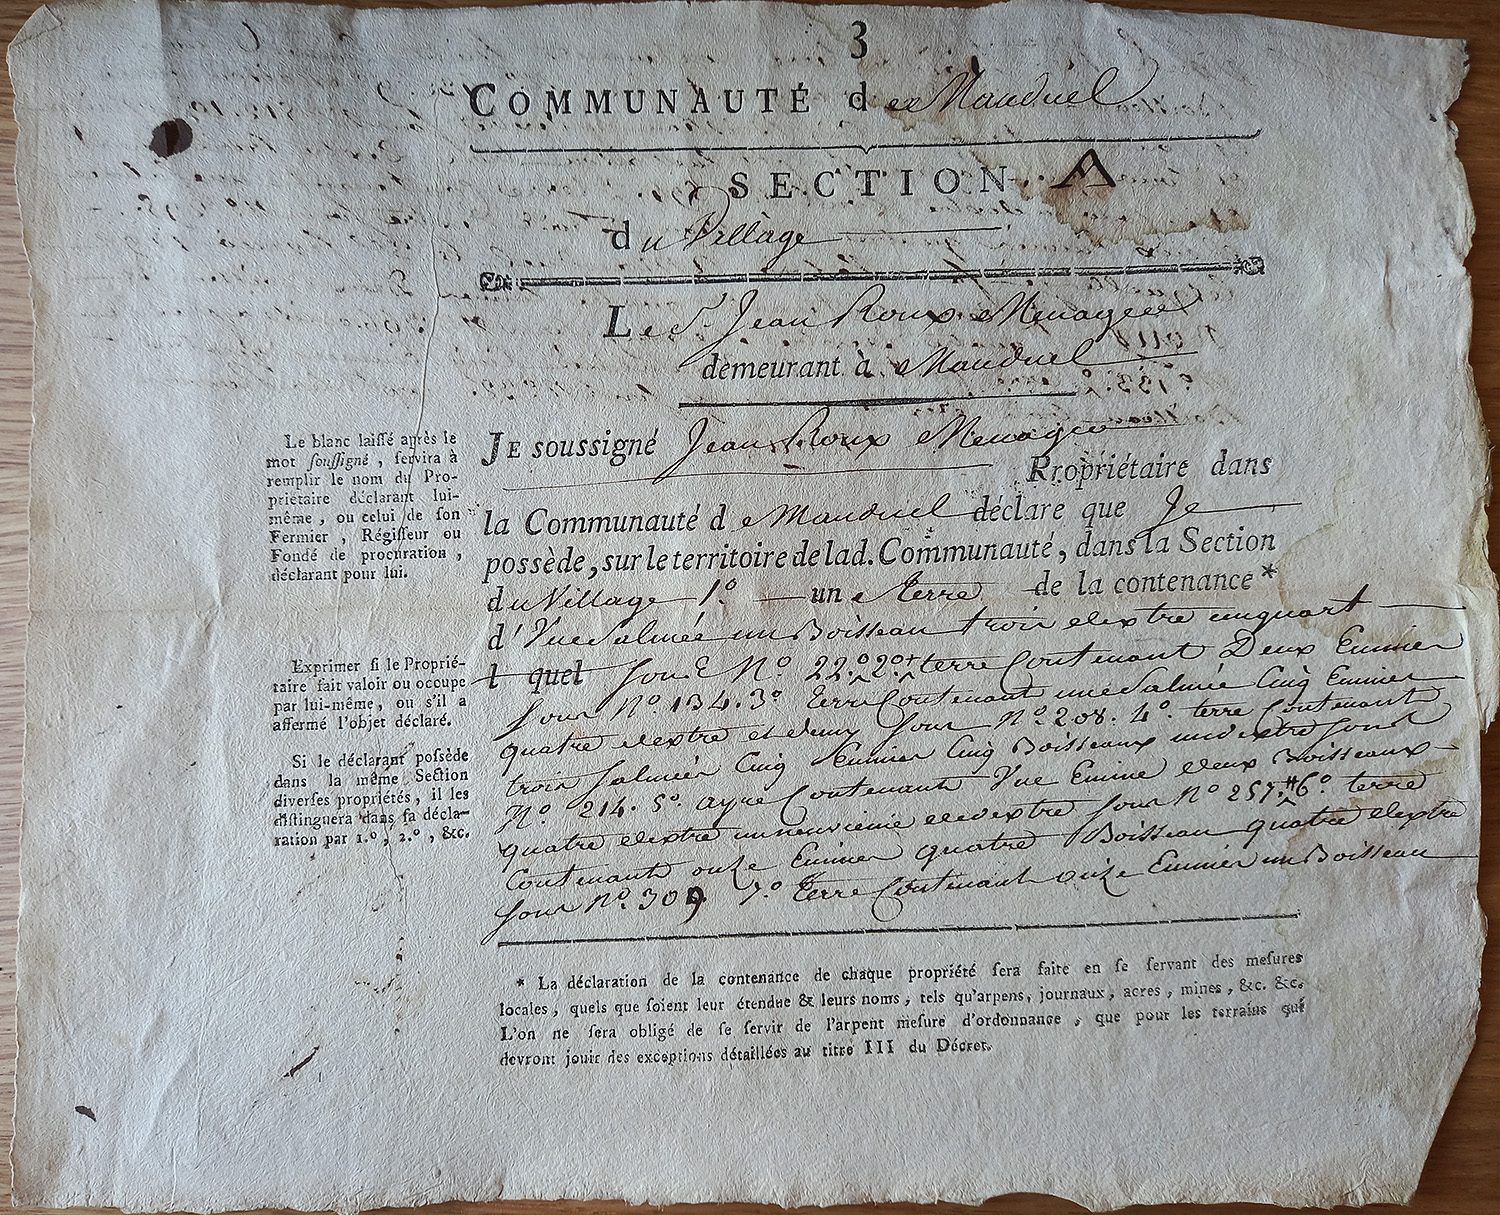 3
COMMUNAUTÉ de Manduel
SECTION A
du Village
Le Sr. Jean Roux Menager
demeurant à Manduel
JE soussigné Jean Roux Menager
Propriétaire dans
la Communauté de Manduel déclare que Je
possède, sur le territoire de lad. Communauté, dans la Section
du Village 1.º un e terre de la contenance*
d'Vne Salmée un Boisseau trois dextre un quart
l quel sous E N.º 22. 2.º terre Contenant Deux Emines
sous N.º 134. 3.º terre Contenant une Salmée Cinq Emines
quatre dextre et demy sous N.º 208. 4.º terre Contenant
trois salmées Cinq Emines Cinq Boisseaux un dextre sous
N.º 214. 5.º ayre Contenant Vne Emine deux Boisseaux
quatre dextre un neuvieme de dextre sous N.º 257. 6.º terre
Contenant onze Emines quatre Boisseau quatre dextre
sous N.º 309 7.º terre Contenant onze Emines un Boisseau
Le blanc laiſſé après le
mot ſouſſigné, ſervira à
remplir le nom du Pro-
priétaire déclarant lui-
même, ou celui de ſon
Fermier, Régiſſeur ou
Fondé de procuration,
déclarant pour lui.
Exprimer ſi le Proprié-
taire fait valoir ou occupe
par lui-même, ou s'il a
affermé l'objet déclaré.
Si le déclarant poſſède
dans la même Section
diverſes propriétés, il les
diſtinguera dans ſa décla-
ration par 1.º, 2.º, &c.
* La déclaration de la contenance de chaque propriété ſera faite en ſe ſervant des meſures
locales, quels que ſoient leur étendue & leurs noms, tels qu'arpens, journaux, acres, mines, &c. &c.
L'on ne ſera obligé de ſe ſervir de l'arpent meſure d'ordonnance, que pour les terrains qui
devront jouir des exceptions détaillées au titre III du Décret.